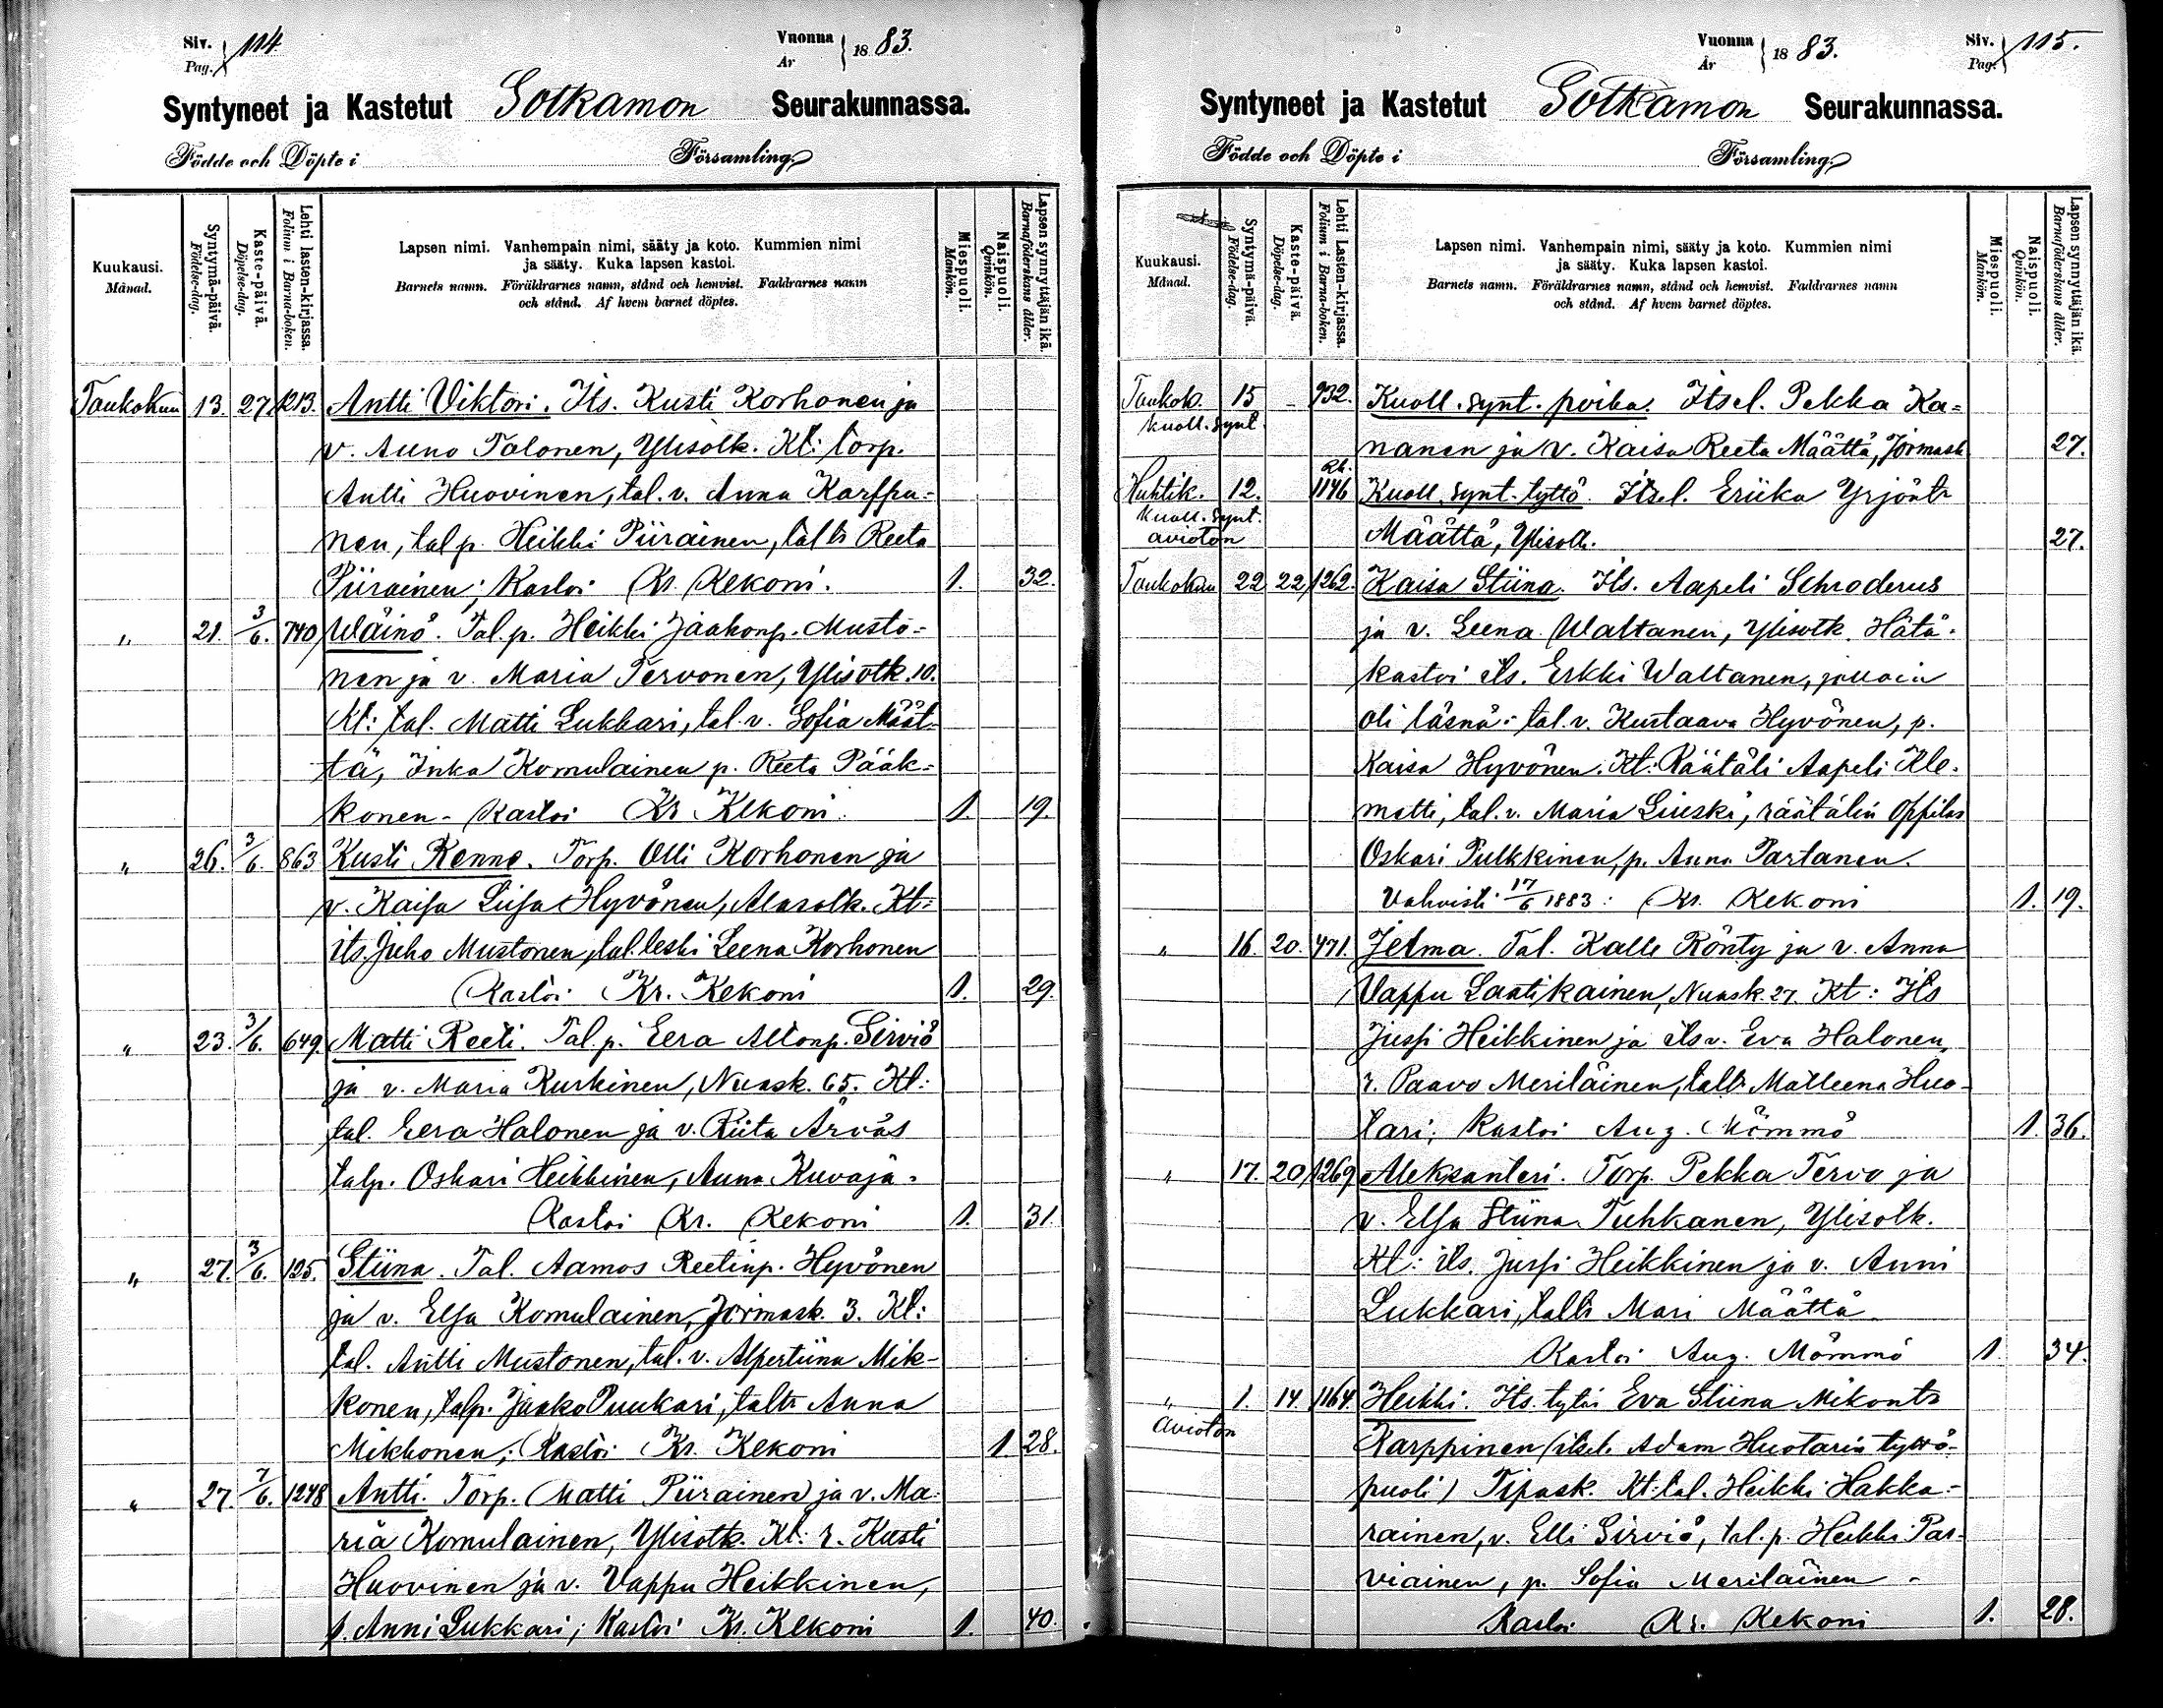 Siv.
Pag. 114
Vuonna
År 1883.
Syntyneet ja Kastetut Sotkamon Seurakunnassa.
Födde och Döpte i Församling.
Kuukausi.
Månad.
Syntymä-päivä.
Födelse-dag.
Kaste-päivä.
Döpelse-dag.
Lehti lasten-kirjassa.
Folium i Barna-boken.
Lapsen nimi. Vanhempain nimi, sääty ja koto. Kummien nimi
ja sääty. Kuka lapsen kastoi.
Barnets namn. Föräldrarnes namn, stånd och hemvist. Faddrarnes namn
och stånd. Af hvem barnet döptes.
Miespuoli.
Mankön.
Naispuoli.
Qvinkön.
Lapsen synnyttäjän ikä.
Barnaföderskans ålder.
Toukokuu 13. 27. 1213. Antti Viktori. Its. Kusti Korhonen ja
v. Auno Talonen, Ylisotk. Kt: torp.
Antti Huovinen, tal. v. Anna Karppi-
nen, talp. Heikki Piirainen, talts Reeta
Piirainen; Kastoi Kr. Kekoni. 1. 32.
" 21. 3/6. 740 Wäinö. Tal. p. Heikki Jaakonp. Musto-
nen ja v. Maria Tervonen, Ylisotk. 10.
Kt: tal. Matti Lukkari, tal. v. Sofia Määt-
tä, Inka Komulainen p. Reeta Pääk-
konen - Kastoi Kr Kekoni. 1. 19.
" 26. 3/6. 863 Kusti Renne. Torp. Olli Korhonen ja
v. Kaisa Liisa Hyvönen, Alasotk. Kt:
its. Juho Mustonen, tal. leski Leena Korhonen
Kastoi Kr. Kekoni 1. 29.
" 23. 3/6. 649. Matti Reeti. Tal. p. Eera Allonp. Sirviö
ja v. Maria Kurkinen, Nuask. 65. Kt:
tal. Eera Halonen ja v. Riita Ärväs
talp. Oskari Heikkinen, Anna Kuvaja.
Kastoi Kr. Kekoni 1. 31.
" 27. 3/6. 125. Stiina. Tal. Aamos Reetinp. Hyvönen
ja v. Elsa Komulainen, Jormask. 3. Kt:
tal. Antti Mustonen, tal. v. Alpertiina Mik-
konen, talp. Jaako Puukari, talts Anna
Mikkonen; Kastoi Kr. Kekoni 1. 28.
" 27. 7/6. 1248 Antti. Torp. Matti Piirainen ja v. Ma-
ria Komulainen, Ylisotk. Kt: r. Kusti
Huovinen ja v. Vappu Heikkinen,
p. Anni Lukkari; Kastoi Kr. Kekoni 1. 40.
Vuonna
År 1883.
Siv.
Pag. 115.
Syntyneet ja Kastetut Sotkamon Seurakunnassa.
Födde och Döpte i Församling.
Kuukausi.
Månad.
Syntymä-päivä.
Födelse-dag.
Kaste-päivä.
Döpelse-dag.
Lehti Lasten-kirjassa.
Folium i Barna-boken.
Lapsen nimi. Vanhempain nimi, sääty ja koto. Kummien nimi
ja sääty. Kuka lapsen kastoi.
Barnets namn. Föräldrarnes namn, stånd och hemvist. Faddrarnes namn
och stånd. Af hvem barnet döptes.
Miespuoli.
Mankön.
Naispuoli.
Qvinkön.
Lapsen synnyttäjän ikä.
Barnaföderskans ålder.
Toukok. 15 - 932. Kuoll. synt. poika. Itsel. Pekka Ka-
kuoll. synt.
nanen ja v. Kaisa Reeta Määttä, Jormask 27.
Huhtik. 12. Rk. 1146 Kuoll. synt. tyttö. Itsel. Eriika Yrjönts
kuoll. synt.
avioton Määttä, Ylisotk. 27.
Toukokuu 22 22 1262. Kaisa Stiina. Its. Aapeli Schroderus
ja v. Leena Waltanen, Ylisotk. Hätä-
kastoi its. Erkki Waltanen, jolloin
oli läsnä: tal. v. Kustaava Hyvönen, p.
Kaisa Hyvönen. Kt: Räätäli Aapeli Kle-
metti, tal. v. Maria Liuski, räätälin oppilas
Oskari Pulkkinen, p. Anna Partanen.
Vahvisti 17/6 1883: Kr. Kekoni 1. 19.
" 16. 20. 471. Jelma. Tal. Kalle Rönty ja v. Anna
Vappu Laatikainen, Nuask. 27. Kt: Its
Jussi Heikkinen ja its v. Eva Halonen,
r. Paavo Meriläinen, talts Malleena Huo-
tari; Kastoi Aug. Mömmö 1. 36.
" 17. 20 1269 Aleksanteri. Torp. Pekka Tervo ja
v. Elsa Stiina Tuhkanen, Ylisotk.
Kt: its. Jussi Heikkinen ja v. Anni
Lukkari, talts Mari Määttä
Kastoi Aug. Mömmö 1 34.
" 1. 14 1164. Heikki. Its. tytär Eva Stiina Mikonts
avioton Karppinen (itsel. Adam Huotarin tytö-
puoli) Tipask. Kt: tal. Heikki Hakka-
rainen, v. Elli Sirviö, tal. p. Heikki Par-
viainen, p. Sofia Meriläinen -
Kastoi Kr. Kekoni 1. 28.